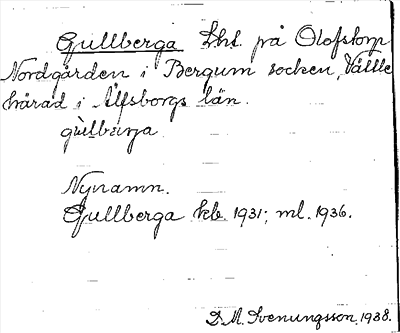 Gullberga lht. på Olofstorp
Nordgården i Bergum socken, Vättle
härad i Älfsborgs län.
gùlbærja
Nynamn.
Gullberga kb. 1931; ml. 1936.
D.M. Svenungsson. 1938.